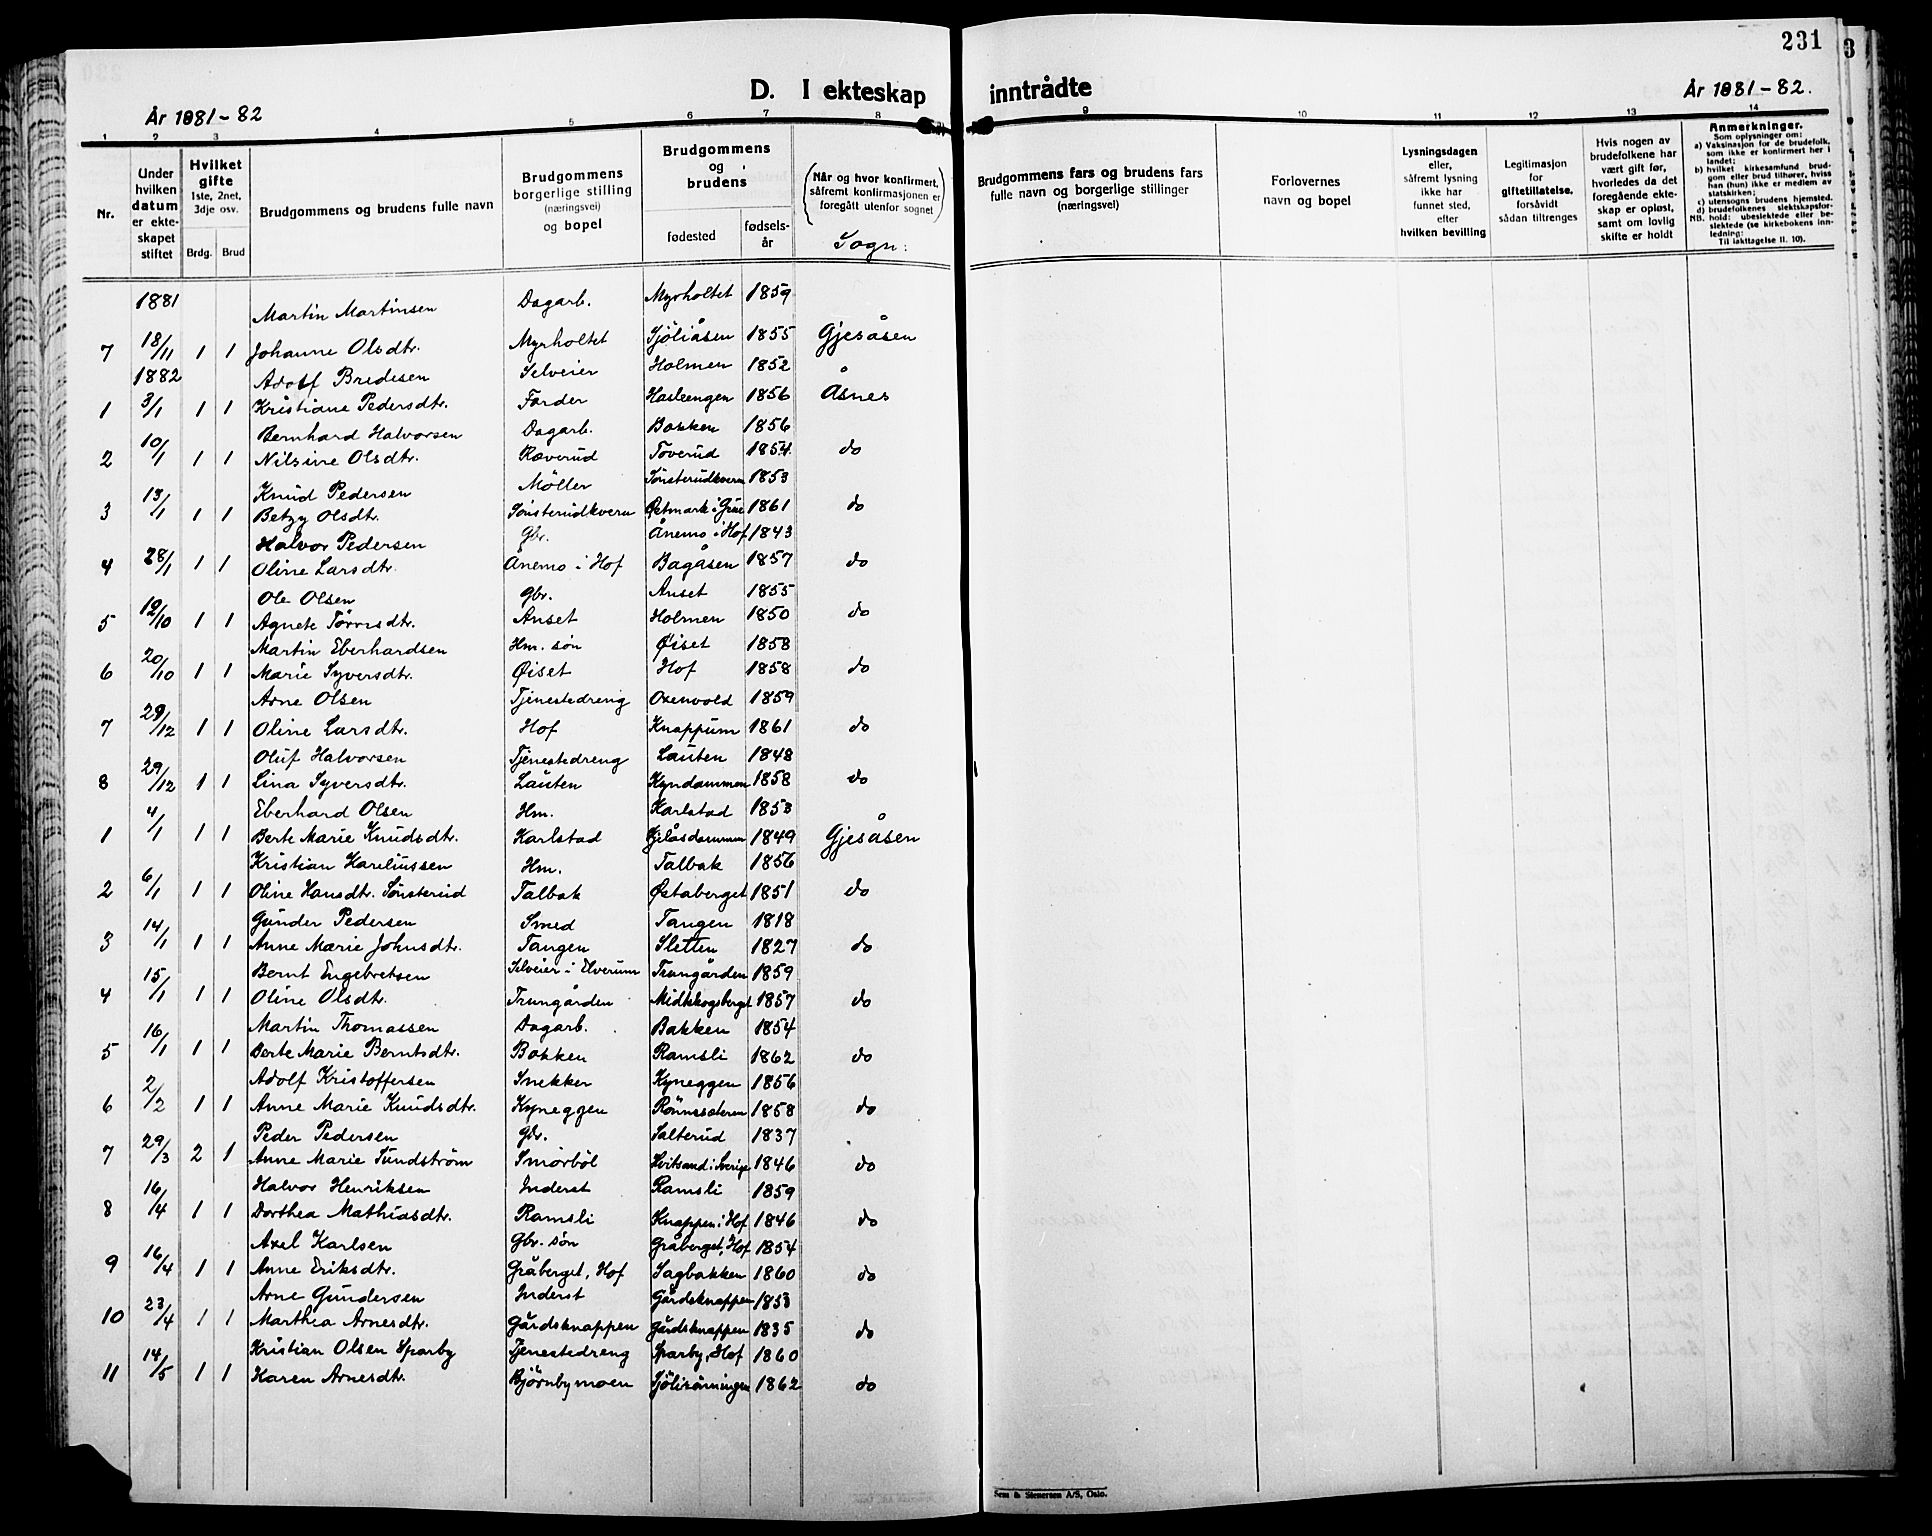 231
3
D. I ekteskap inntrådte
År 1881-82
År 1881-82.
1 2 3 4 5 6 7 8 9 10 11 12 13 14
Nr.
Under hvilken datum er ekteskapet stiftet
Hvilket gifte 1ste, 2net, 3dje osv.
Brdg. Brud
Brudgommens og brudens fulle navn
Brudgommens borgerlige stilling (næringsvei) og bopel
Brudgommens og brudens
fødested
fødselsår
(Når og hvor konfirmert, såfremt konfirmasjonen er foregått utenfor sognet)
Sogn:
Brudgommens fars og brudens fars fulle navn og borgerlige stillinger (næringsvei)
Forlovernes navn og bopel
Lysningsdagen eller, såfremt lysning ikke har funnet sted, efter hvilken bevilling
Legitimasjon for giftetillatelse, forsåvidt sådan tiltrenges
Hvis nogen av brudefolkene har vært gift før, hvorledes da det foregående ekteskap er opløst, samt om lovlig skifte er holdt
Anmerkninger.
Som oplysninger om:
a) Vaksinasjon for de brudefolk, som ikke er konfirmert her i landet;
b) hvilket kirkesamfund brudgom eller brud tilhører, hviss han (hun) ikke er medlem av statskirken;
c) utensogns brudens hjemsted.
d) brudefolkenes slektskapsforhold: ubeslektede eller beslektede (se kirkebokens innledning:
NB. Til iakttagelse II. 10).
1881 Martin Martinsen Dagarb. Myrholtet 1859
7 18/11 1 1 Johanne Olsdtr. Myrholtet Sjöliåsen 1855 Gjesåsen
1882 Adolf Bredesen Selveier Holmen 1852
1 3/1 1 1 Kristiane Pedersdtr. Førder Hasleengen 1856 Åsnes
Bernhard Halvorsen Dagarb. Bakken 1856
2 10/1 1 1 Nilsine Olsdtr. Ræverud Toverud 1854 do
Knud Pedersen Møller Sønsterudkvern 1853
3 13/1 1 1 Betzy Olsdtr. Sønsterudkvern Østmark i Grue 1861 do
Halvor Pedersen Gbr. Ånemo i Hof 1843
4 28/1 1 1 Oline Larsdtr. Ånemo i Hof Bagåsen 1857 do
Ole Olsen Gbr. Anset 1855
5 12/10 1 1 Agnete Tørrisdtr. Anset Holmen 1850 do
Martin Eberhardsen Hm. søn Øiset 1858
6 20/10 1 1 Marie Syversdtr. Øiset Hof 1858 do
Arne Olsen Tjenestedreng Oxenvold 1859
7 29/12 1 1 Oline Larsdtr. Hof Knappum 1861 do
Oluf Halvorsen Tjenestedreng Lauten 1848
8 29/12 1 1 Lina Syversdtr. Lauten Kyndammen 1858 do
Eberhard Olsen Hm. Karlstad 1853
1 4/1 1 1 Berte Marie Knudsdtr. Karlstad Kjelåsdammen 1849 Gjesåsen
Kristian Kareliussen Hm. Talbak 1856
2 6/1 1 1 Oline Hansdtr. Sønsterud Talbak Østaberget 1851 do
Gunder Pedersen Smed Tangen 1818
3 14/1 1 1 Anne Marie Johnsdtr. Tangen Sletten 1827 do
Bernt Engebretsen Selveier i Elverum Trungården 1859
4 15/1 1 1 Oline Olsdtr. Trungården Midtskogsberget 1857 do
Martin Thomassen Dagarb. Bakken 1854
5 16/1 1 1 Berte Marie Berntsdtr. Bakken Ramsli 1862 do
Adolf Kristoffersen Snekker Kyneggen 1856
6 2/2 1 1 Anne Marie Knudsdtr. Kyneggen Rönnesæteren 1858 do
Peder Pedersen Gbr. Salterud 1837
7 29/3 2 1 Anne Marie Sundström Smörböl Hvitsand i Sverige 1846 do
Halvor Henriksen Inderst Ramsli 1859
8 16/4 1 1 Dorthea Mathiasdtr. Ramsli Knappen i Hof 1846 do
Axel Karlsen Gbr. søn Gråberget, Hof 1854
9 16/4 1 1 Anne Eriksdtr. Gråberget, Hof Sagbakken 1860 do
Arne Gundersen Inderst Gårdsknappen 1853
10 23/4 1 1 Marthea Arnesdtr. Gårdsknappen Gårdsknappen 1835 do
Kristian Olsen Sparby Tjenestedreng Sparby, Hof 1860
11 14/5 1 1 Karen Arnesdtr. Björnbymoen Sjölirönningen 1862 do
Sem & Stenersen A/S, Oslo.